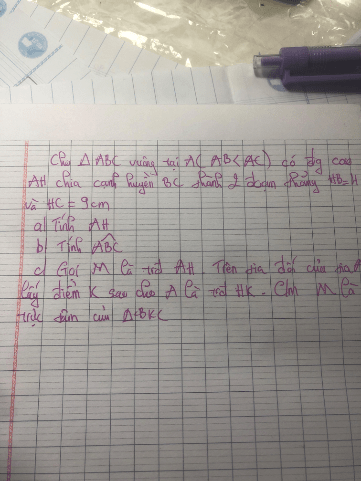 Cho Δ ABC vuông tại A( AB<AC) có đg cao
AH chia cạnh huyền BC thành 2 đoạn thẳng HB=
và HC = 9cm
a) Tính AH
b) Tính ABC
c) Gọi M là trđ AH. Trên tia đối của tia
lấy điểm K sao cho A là trđ HK. Cmr M là
trực tâm của Δ BKC